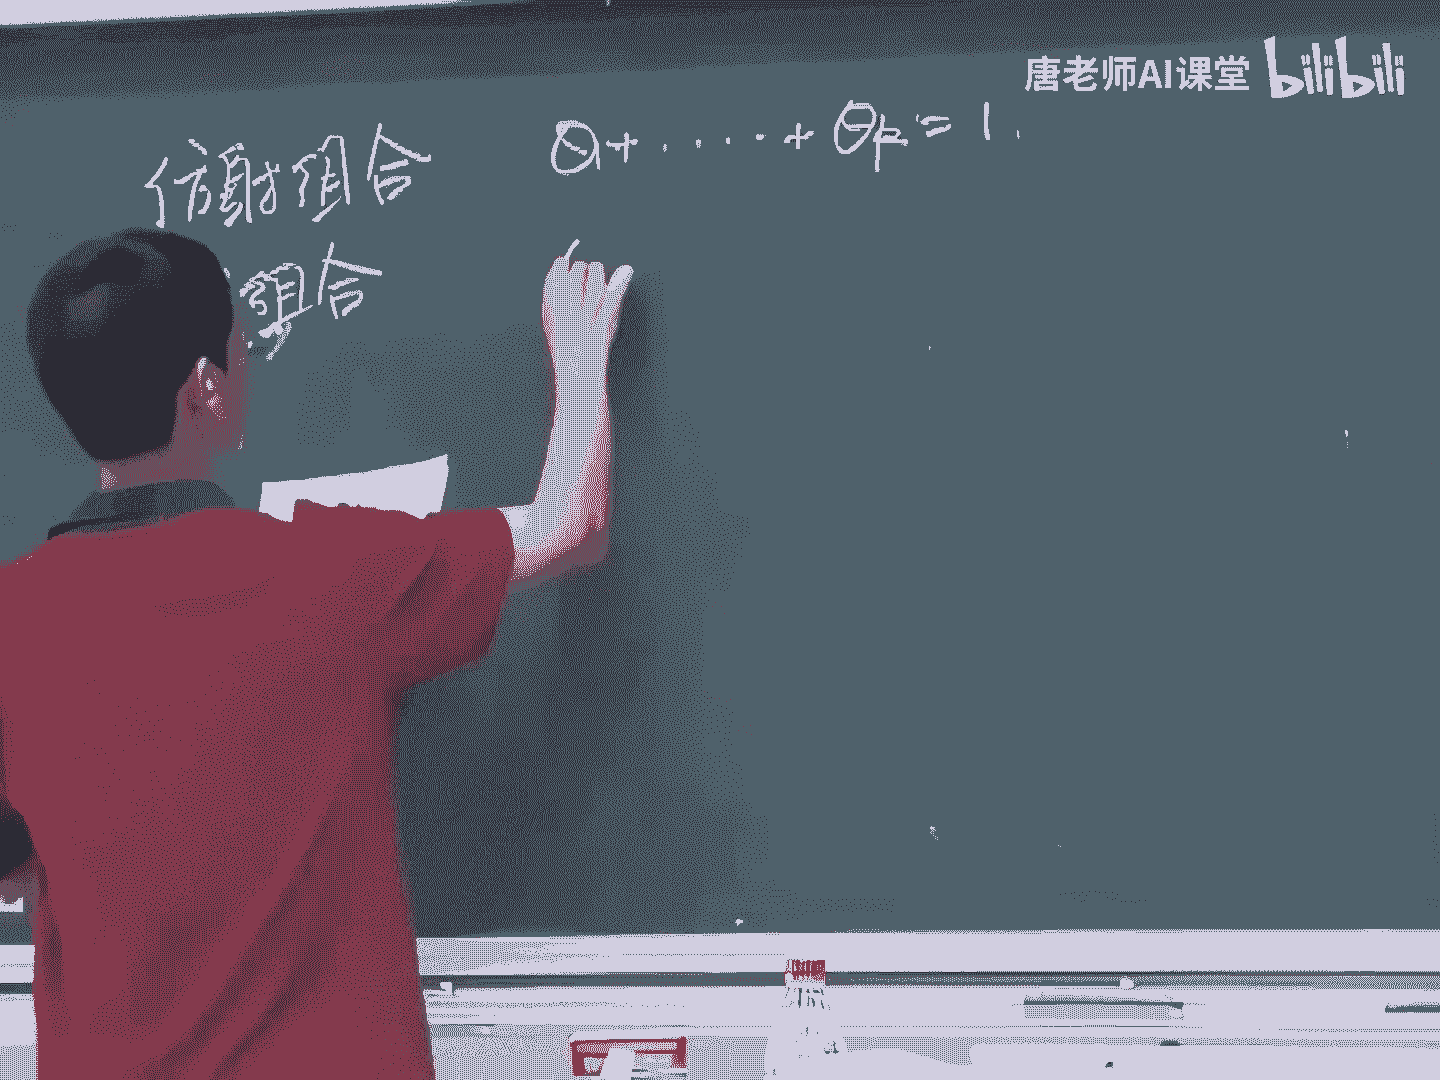 唐老师AI课堂 bilibili
仿射组合 θ₁+ ····· + θₖ = 1.
组合